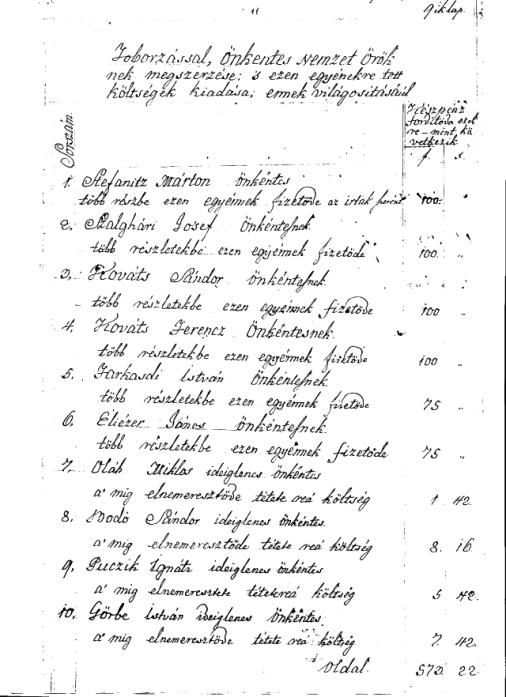 9ik lap.
Toborzással, Önkentes Nemzet Örök
nek megszerzése; s ezen egyénekre tett
költségek kiadása; ennek világositásául
Sorszám.
Készpénz
forditóda ezek
re – mint, kö
vetkezik
f.
1. Stefanitz Márton önkéntes
több részbe ezen egyéimek fizetőde az irtak szerint 100.
2. Szalghári Josef önkéntesnek
több részletekbe ezen egyéimek fizetőde 100. "
3. Kováts Sándor önkéntesnek
több részletekbe ezen egyéimek fizetőde 100 "
4. Kováts Ferencz Önkéntesnek.
több részletekbe ezen egyéimek fizetőde 100 "
5. Farkasdi István Önkéntesnek.
több részletekbe ezen egyéimek fizetőde 75 "
6. Eliézer János – önkéntesnek.
több részletekbe ezen egyéimek fizetőde 75 "
7. Oláh Miklos ideiglenes önkéntes
a' mig elnemeresztőde tétete reá költség 1 42.
8. Bodó Sándor ideiglenes önkéntes.
a' mig elnemeresztőde tétete reá költség 8. 16.
9. Puczik Ignátz ideiglenes önkéntes
a' mig elnemeresztete tétetereá költség 5 42.
10. Görbe István ideiglenes önkéntes.
a' mig elnemeresztőde tétete reá költség 7. 42
Oldal. 573. 22